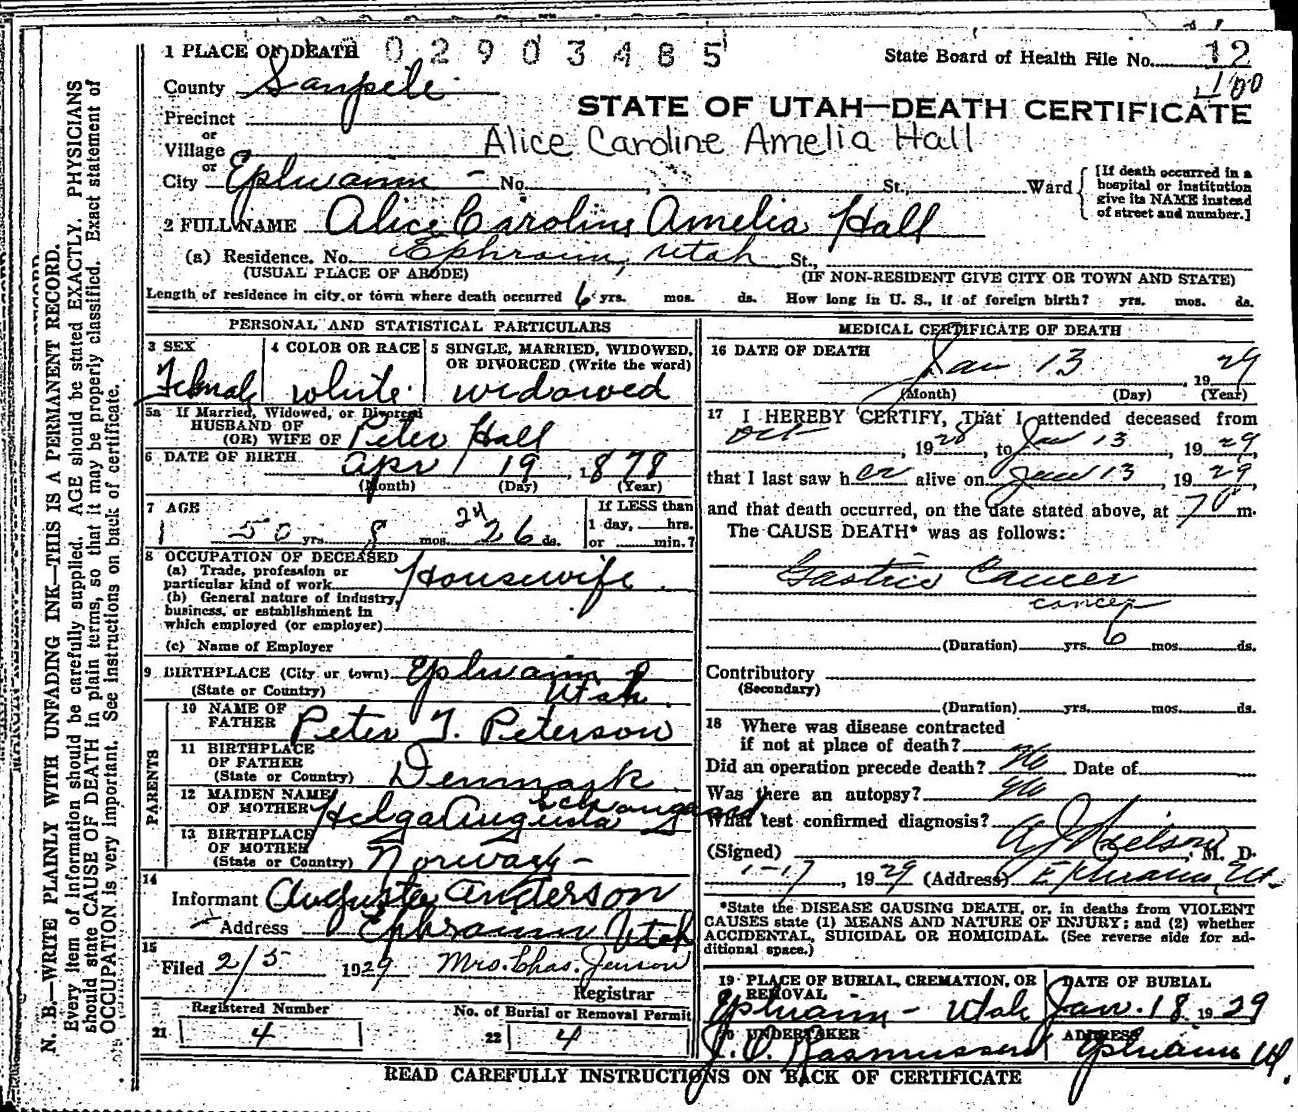 1 PLACE OF DEATH 0 2 9 0 3 4 8 5 State Board of Health File No. 12
100
County Sanpete
STATE OF UTAH—DEATH CERTIFICATE
Precinct
or
Village
Alice Caroline Amelia Hall
or
City Ephraim - No. St., Ward
[If death occurred in a hospital or institution give its NAME instead of street and number.]
2 FULL NAME Alice Caroline Amelia Hall
(a) Residence. No. Ephraim, Utah St.,
(USUAL PLACE OF ABODE) (IF NON-RESIDENT GIVE CITY OR TOWN AND STATE)
Length of residence in city or town where death occurred 6 yrs. mos. ds. How long in U. S., if of foreign birth? yrs. mos. ds.
PERSONAL AND STATISTICAL PARTICULARS
3 SEX 4 COLOR OR RACE 5 SINGLE, MARRIED, WIDOWED,
OR DIVORCED (Write the word)
Female white widowed
5a If Married, Widowed, or Divorced
HUSBAND OF
(OR) WIFE OF Peter Hall
6 DATE OF BIRTH Apr 19 1878
(Month) (Day) (Year)
7 AGE If LESS than
50 yrs. 8 mos. 24 26 ds. 1 day, hrs.
or min.?
8 OCCUPATION OF DECEASED
(a) Trade, profession or
particular kind of work Housewife
(b) General nature of industry,
business, or establishment in
which employed (or employer)
(c) Name of Employer
9 BIRTHPLACE (City or town) Ephraim
(State or Country) Utah
PARENTS
10 NAME OF
FATHER Peter T. Peterson
11 BIRTHPLACE
OF FATHER
(State or Country) Denmark
12 MAIDEN NAME
OF MOTHER Helga Augusta
13 BIRTHPLACE
OF MOTHER
(State or Country) Norway -
14
Informant Augusta Anderson
Address Ephraim Utah
15
Filed 2/5 1929 Mrs. Chas. Jenson
Registrar
Registered Number No. of Burial or Removal Permit
21 4 22 4
MEDICAL CERTIFICATE OF DEATH
16 DATE OF DEATH
Jan 13, 1929
(Month) (Day) (Year)
17 I HEREBY CERTIFY, That I attended deceased from
Oct, 1928, to Jan 13 1929,
that I last saw her alive on Jan 13, 1929,
and that death occurred, on the date stated above, at m.
The CAUSE DEATH* was as follows:
Gastric Cancer
cancer
(Duration) yrs. 6 mos. ds.
Contributory
(Secondary)
(Duration) yrs. mos. ds.
18 Where was disease contracted
if not at place of death?
Did an operation precede death? No Date of
Was there an autopsy? No
What test confirmed diagnosis?
(Signed) A J Nielson, M. D.
1-17, 1929 (Address) Ephraim, Ut.
*State the DISEASE CAUSING DEATH, or, in deaths from VIOLENT
CAUSES state (1) MEANS AND NATURE OF INJURY; and (2) whether
ACCIDENTAL, SUICIDAL OR HOMICIDAL. (See reverse side for ad-
ditional space.)
19 PLACE OF BURIAL, CREMATION, OR
REMOVAL DATE OF BURIAL
Ephraim - Utah Jan. 18. 1929
20 UNDERTAKER ADDRESS
Rasmussen Ephraim Ut.
READ CAREFULLY INSTRUCTIONS ON BACK OF CERTIFICATE
N. B.—WRITE PLAINLY WITH UNFADING INK—THIS IS A PERMANENT RECORD.
Every item of information should be carefully supplied. AGE should be stated EXACTLY. PHYSICIANS
should state CAUSE OF DEATH in plain terms, so that it may be properly classified. Exact statement of
OCCUPATION is very important. See instructions on back of certificate.